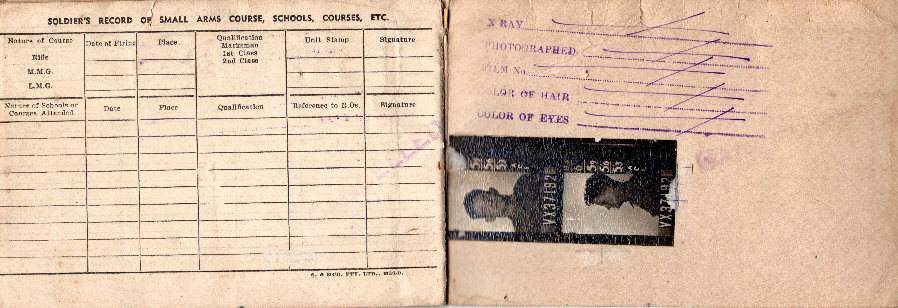 SOLDIER'S RECORD OF SMALL ARMS COURSE, SCHOOLS, COURSES, ETC.
Nature of Course Date of Firing Place Qualification Marksman 1st Class 2nd Class Unit Stamp Signature
Rifle
M.M.G.
L.M.G.
Nature of Schools or Courses Attended Date Place Qualification Reference to R.Os. Signature
PTY. LTD.,
X RAY
PHOTOGRAPHED
FILM No.
COLOR OF HAIR
COLOR OF EYES
VX37192
VX37192